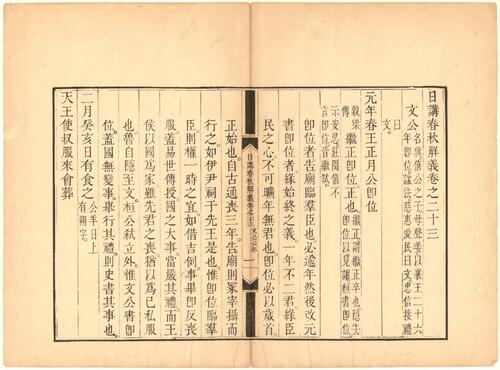 日講春秋解義卷之二十三
文公名興僖公之子母聲姜以襄王二十六
年即位謚法慈惠愛民曰文忠信接禮
曰文
元年春王正月公即位
穀梁傳繼正即位正也繼正謂繼正卒也隱去
即位以見讓桓書即位
示安忍莊閔僖不
言即位皆繼弑
即位者告廟臨羣臣也必逾年然後改元
書即位者緣始終之義一年不二君緣臣
民之心不可曠年無君也即位必以歲首
日講春秋解義
一
正始也自古通喪三年告廟則冢宰攝而
行之如伊尹祠于先王是也惟即位臨羣
臣則權一時之宜如借吉例事畢即反喪
服蓋易世傳授國之大事當嚴其禮而王
侯以國爲家雖先君之喪猶以爲已私服
也魯自隱至文桓公弑立外惟文公書即
位蓋國無變事舉行其禮則史書其事也
二月癸亥日有食之公羊日上
有朔字
天王使叔服來會葬